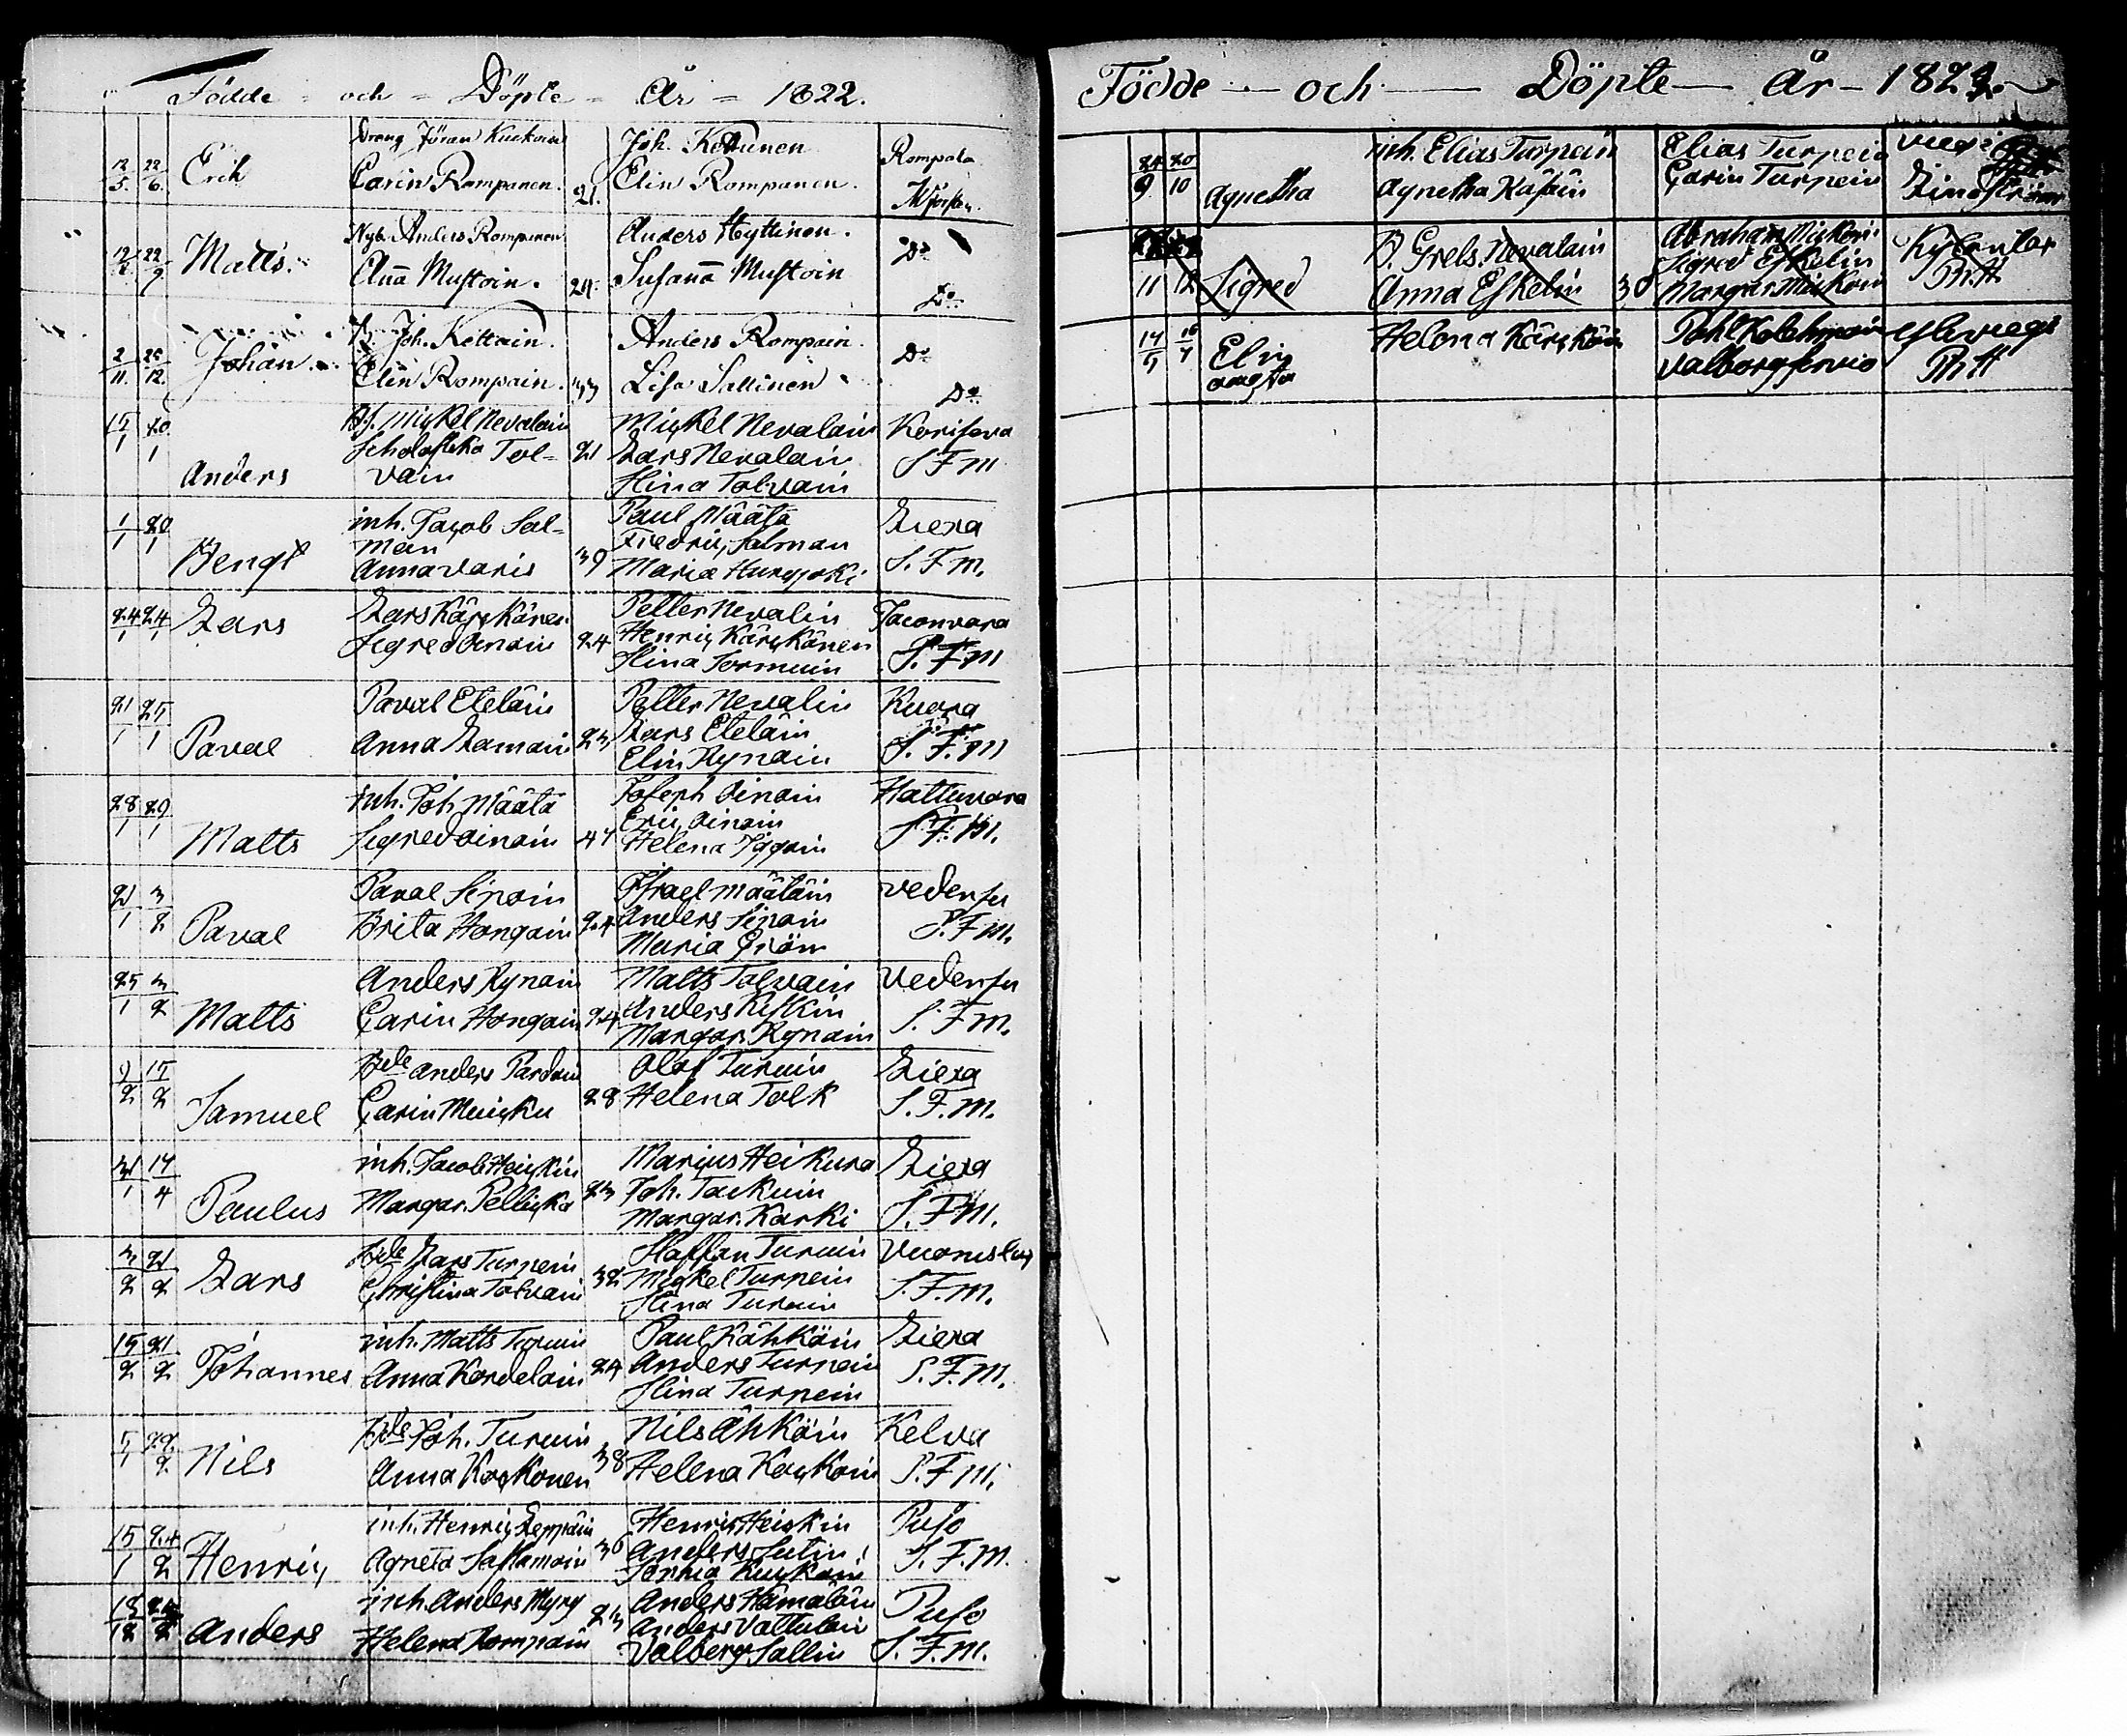 Födde - och - Döpte - År - 1822.
12/5. 22/6. Erich
Dreng Jöran Kuckoin
Carin Rompanen. 21.
Joh. Kettunen
Elin Rompanen.
Rompala
Matts.
Nyb. Anders Rompanen
Anna Mustoin. 24.
Anders Hyttinen.
Susana Mustoin
Do
Do
2/11. 26/12. Johan.
B. Joh. Kettain.
Elin Rompain. 33
Anders Rompain.
Lisa Sallinen
Do
Do
15/1 20/1 Anders
Bf. Mickel Nevalain
Scholastika Tol-
vain 21
Mickel Nevalain
Lars Nevalain
Stina Tolvain
Koriseva
S F M
1/1 20/1 Bengt
inh. Jacob Sal-
man
Anna Varis 39
Paul Määtä
Fredric Salman
Maria Hurskoki
Liexa
S. F M.
24/1 24/1 Lars
Lars Kärckänen
Sigred Oinoin 24
Petter Nevalin
Henric Kärckänen
Stina Sormuin
Jaconvara
S. F M
21/1 25/1 Paval
Paval Eteläin
Anna Lamain 23
Petter Nevalin
Lars Eteläin
Elin Rynäin
Kuora
S. F. M
28/1 29/1 Matts
inh. Joh. Määtä
Sigred Oinoin 47
Joseph Oinoin
Eric Oinoin
Helena Iggoin
Hattuvara
S F. M.
21/1 3/2 Paval
Paval Sipoin
Brita Hongain 24
Israel Määtäin
Anders Sipoin
Maria Ström
Vedensu
S. F M.
25/1 3/2 Matts
Anders Rynain
Carin Hongain 24
Matts Tolvain
Anders Kiskin
Margar. Rynain
Vedensu
S. F M.
9/2 15/2 Samuel
Bde Anders Pardain
Carin Muicku 28
Olof Turuin
Helena Tolk
Liexa
S. F. M.
31/1 14/4 Paulus
inh. Jacob Heickin
Margar. Pellicka 23
Marcus Heikura
Joh. Tackuin
Margar. Karki
Liexa
S. F M.
3/2 21/2 Lars
Bde Lars Turpein
Christina Tolvain 32
Staffan Turuin
Mickel Turpein
Stina Turuin
Vuonislax
S. F. M.
15/2 21/2 Johannes
inh. Matts Turuin
Anna Kordelain 24
Paul Kähköin
Anders Turpein
Stina Turpein
Liexa
S. F. M.
5/1 22/2 Nils
Bde Joh. Turuin
Anna Kockonen 38
Nils Ähköin
Helena Kockoin
Kelva
S. F M.
15/1 24/2 Henric
inh. Henric Leppäin
Agneta Sastamoin 36
Henric Heiskin
Anders Lutin
Sophia Kuckoin
Puso
S. F. M.
18/12 Anders
inh. Anders Myry
Helena Rompain 23
Anders Hämäläin
Anders Vattulain
Valborg Sallin
Puso
S. F. M.
Födde - och - Döpte - År - 1822.
24/9 20/10 Agnetha
inh. Elias Turpein
Agnetha Käsäin
Elias Turpein
Carin Turpein
Lindström
11 12 Sigred
B. Grels Nevalain
Anna Eskelin 30
Abraham Mickoin
Sigred Eskelin
Margar. Mickoin
Kylänlax
Ph. H.
14/5 Elin
Augsta
Helena Kärckäin
Pohl Kolehmain
Valborg Jervio
Ph H